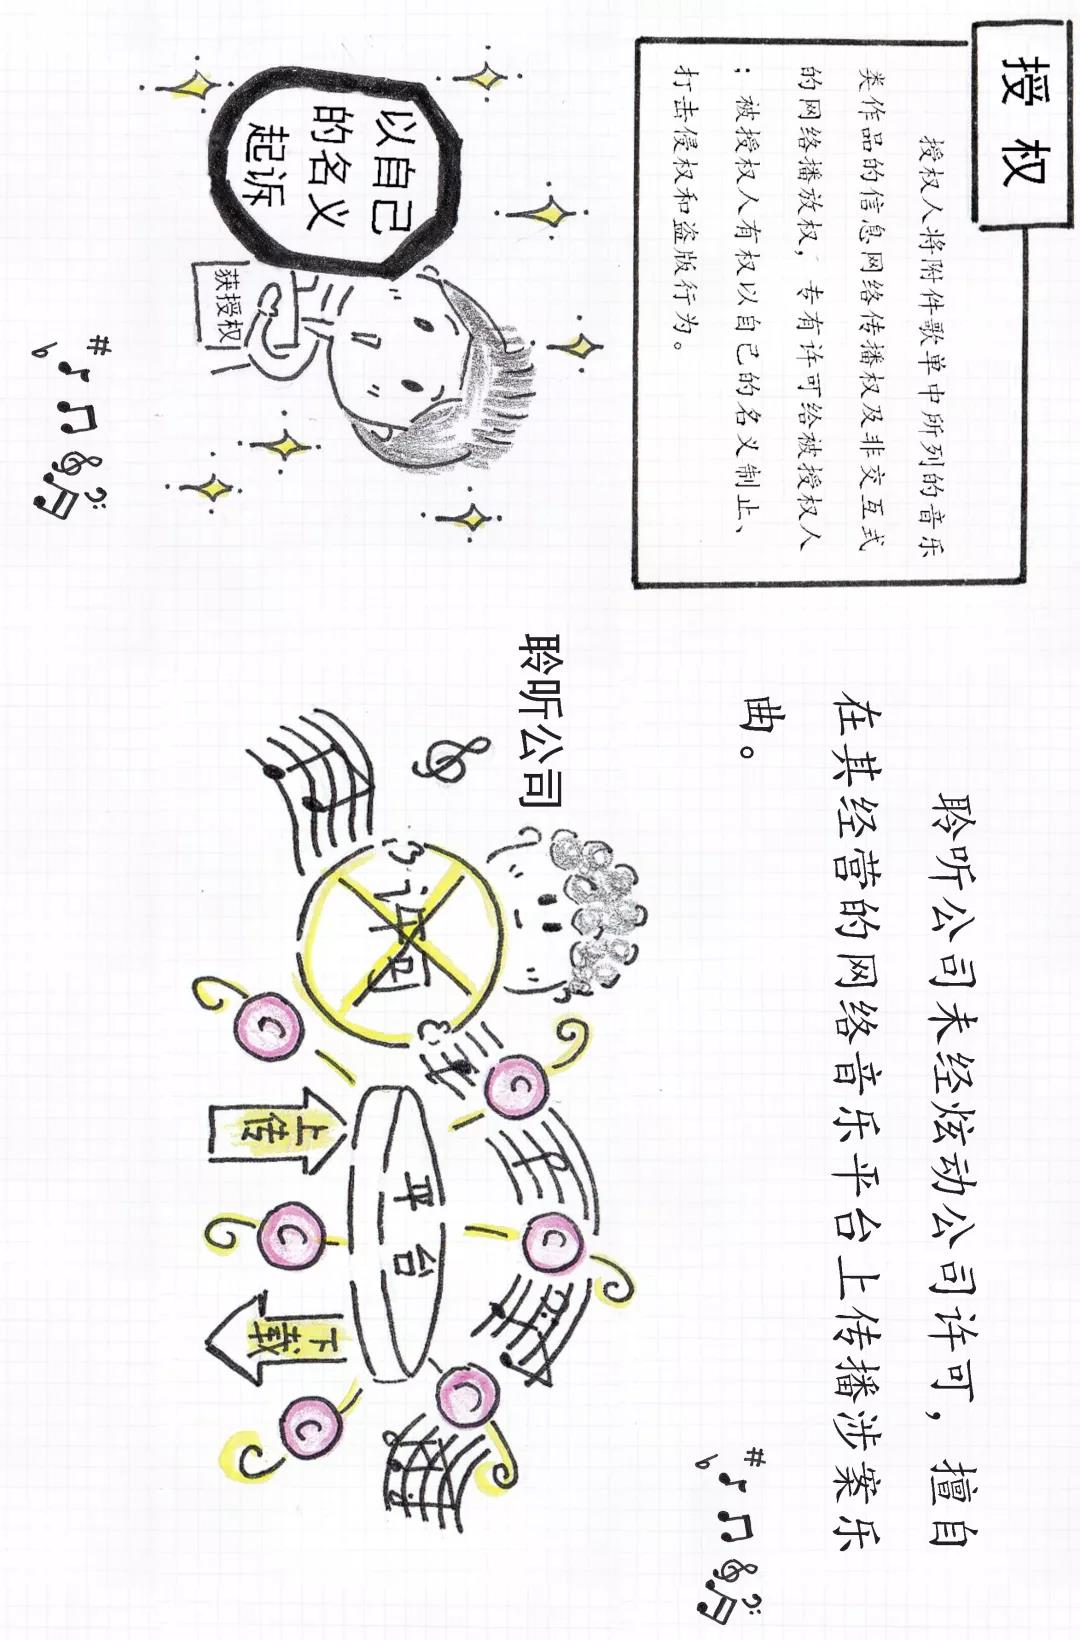 授权
授权人将附件歌单中所列的音乐
类作品的信息网络传播权及非交互式
的网络播放权，专有许可给被授权人
；被授权人有权以自己的名义制止、
打击侵权和盗版行为。
以自己
的名义
起诉
获授权
聆听公司未经炫动公司许可，擅自
在其经营的网络音乐平台上传播涉案乐
曲。
聆听公司
许可
C
C
C
平台
C
C
C
上传
下载